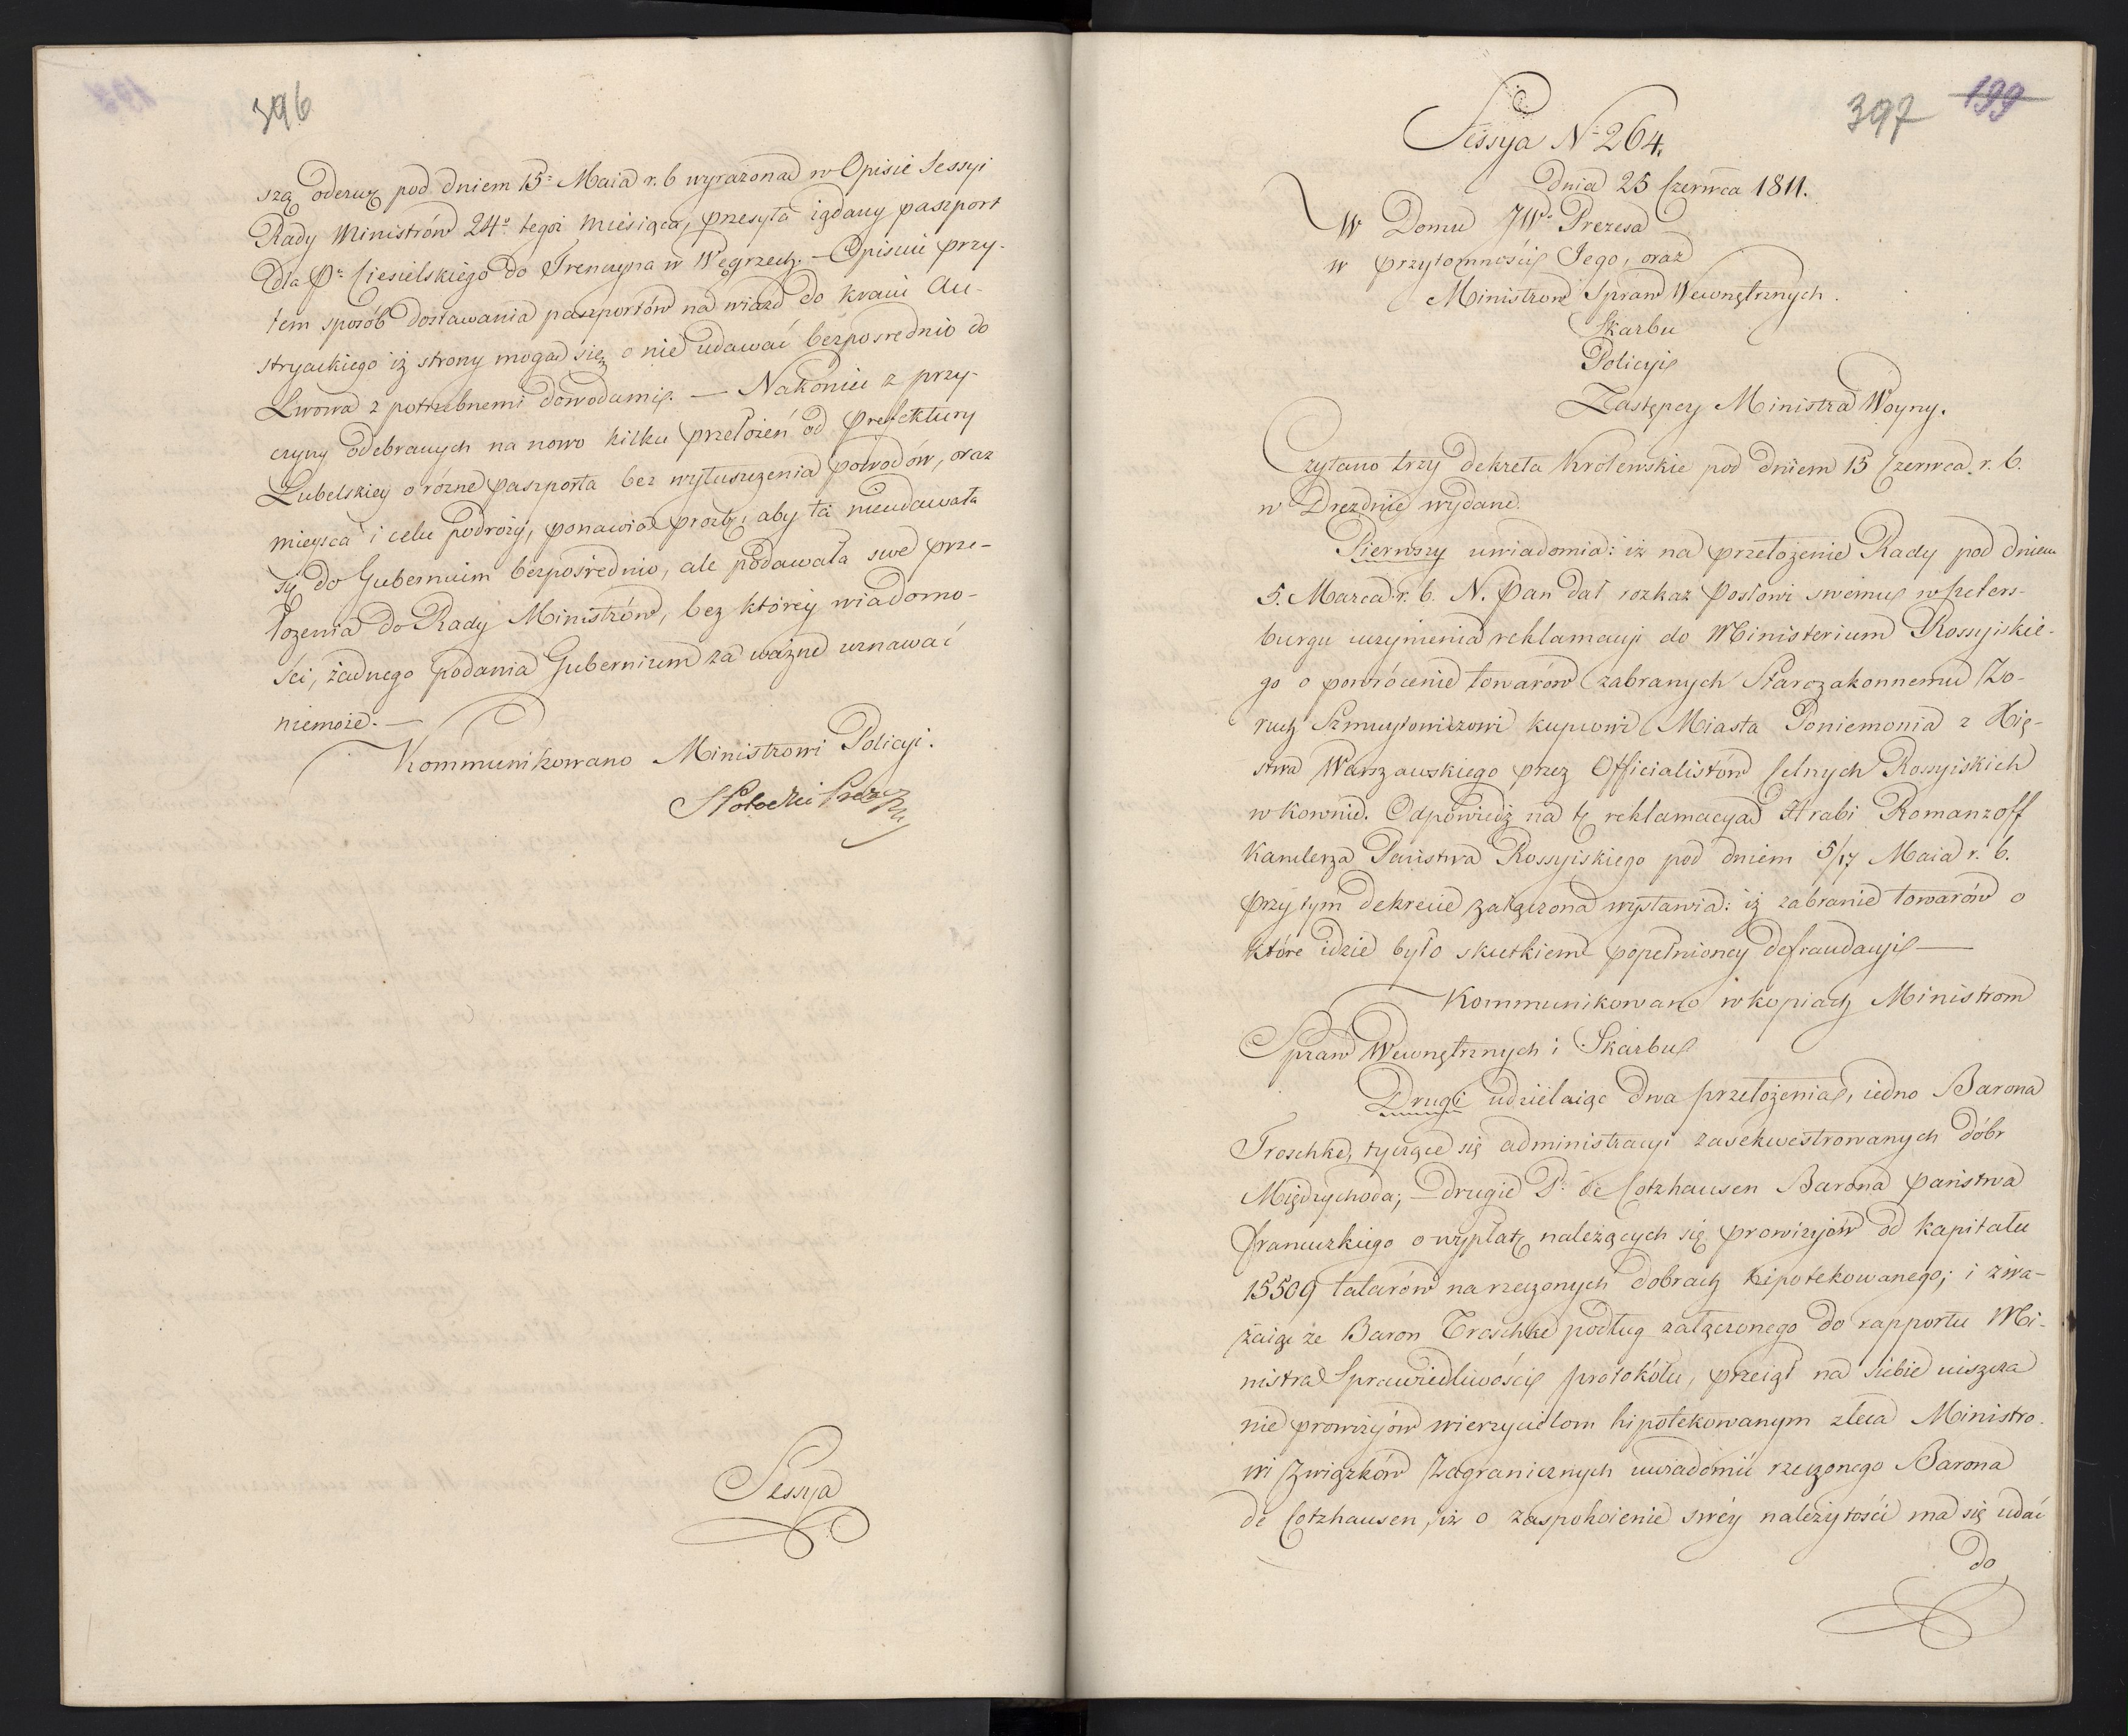 396
szą odezwę pod dniem 15º Maia r. b wyrażona w Opisie Sessyi
Rady Ministrów 24º tegoż miesiąca, przesyła żądany paszport
dla Pª Ciesielskiego do Trenczyna w Węgrzech. — Opisuie przy-
tem sposób dostawania paszportów na wiazd do kraiu Au-
stryackiego iż strony mogą się o nie udawać bezpośrednio do
Lwowa z potrzebnemi dowodami. — Nakoniec z przy-
czyny odebranych na nowo kilku przełożeń od Prefektury
Lubelskiey o różne paszporta bez wyłuszczenia powodów, oraz
mieysca i celu podroży, ponawia prozbę, aby ta nieudawała
się do Gubernium bezpośrednio, ale podawała swe prze-
łożenia do Rady Ministrów, bez którey wiadomo-
ści, żadnego podania Gubernium za ważne uznawać
niemoże. —
Kommunikowano Ministrowi Policyi.
SPotocki Prez
Sessya
397 199
Sessya Nº 264.
Dnia 25 Czerwca 1811.
W Domu JWº Prezesa
w przytomności Jego, oraz
Ministrow Spraw Wewnętrznych.
Skarbu
Policyi
Zastępcy Ministra Woyny.
Czytano trzy dekreta Królewskie pod dniem 15 Czerwca r. b.
w Dreznie wydane.
Pierwszy uwiadomia: iż na przełożenie Rady pod dniem
5. Marca r. b. N. Pan dał rozkaz Posłowi swemu w Peters-
burgu uczynienia reklamacyi do Ministerium Rossyiskie-
go o powrócenie towarów zabranych Starozakonnemu Zo-
ruch Szmuyłowiczowi kupcowi Miasta Poniemonia z Xię-
stwa Warszawskiego przez Officialistów Celnych Rossyiskich
w Kownie. Odpowiedź na tę reklamacyą Hrabi Romanzoff
Kanclerza Państwa Rossyiskiego pod dniem 5/17 Maia r. b.
przy tym dekrecie załączona wystawia: iż zabranie towarów o
które idzie było skutkiem popełnioney defraudacyi —
Kommunikowano w kopiach Ministrom
Spraw Wewnętrznych i Skarbu
Drugi udzielaiąc dwa przełożenia, iedno Barona
Troschke, tyczące się administracyi zasekwestrowanych dóbr
Międzychoda; — drugie Pª de Cotzhausen Barona państwa
francuzkiego o wypłatę należących się prowizyjów od kapitału
15509 talarów na rzeczonych dobrach hipotekowanego; i zwa-
żaiąc że Baron Troschke podług załączonego do rapportu Mi-
nistra Sprawiedliwości protokółu, przeiął na siebie uiszcza
nie prowizyjów wierzycielom hipotekowanym zleca Ministro-
wi Związków Zagranicznych uwiadomić rzeczonego Barona
de Cotzhausen, iż o zaspokoienie swéy należytości ma się udać
do